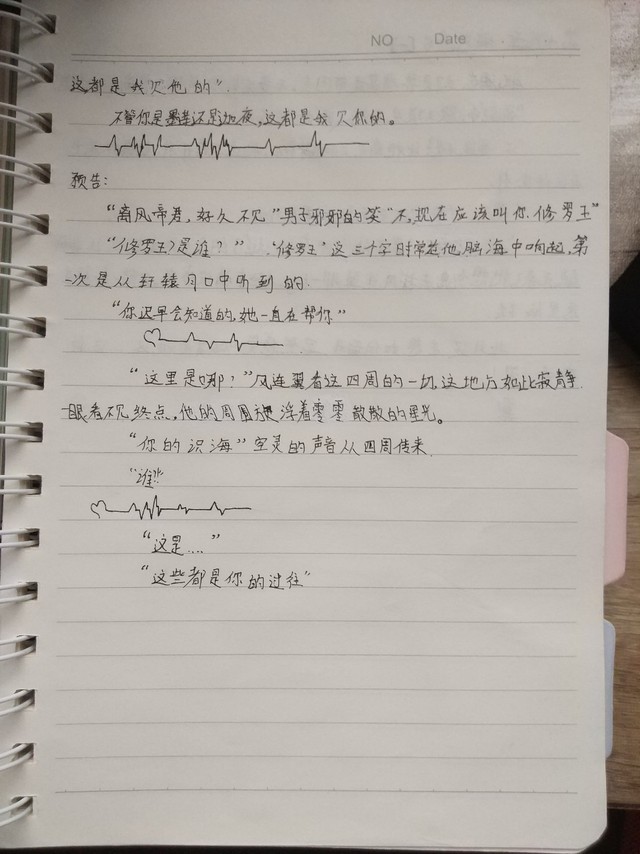 NO Date
这都是我欠他的”.
不管你是墨莲还是地夜,这都是我欠你的。
预告:
“离风帝君,好久不见”男子邪邪的笑“不,现在应该叫你.修罗王”
“(修罗王)是谁?” .‘修罗王’这三个字时常在他脑海中响起,第
一次是从轩辕月口中听到的.
“你迟早会知道的,她一直在帮你”
“这里是哪?”风连翼看这四周的一切,这地方如此寂静.
一眼看不见终点,他的周围漂浮着零零散散的星光。
“你的识海”空灵的声音从四周传来.
“谁!”
“这是....”
“这些都是你的过往”